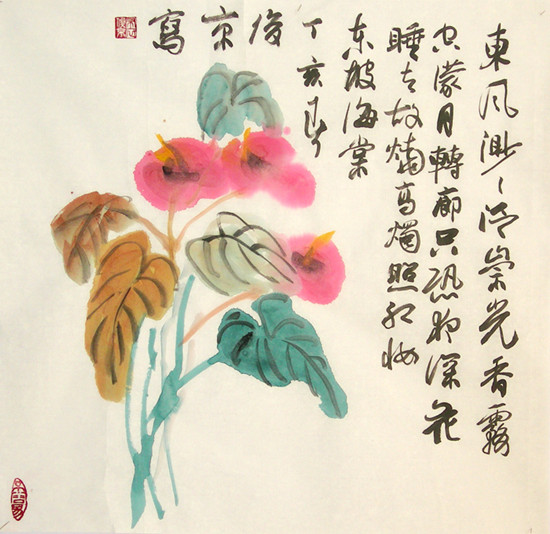 東風渺渺泛崇光香霧
空蒙月轉廊只恐夜深花
睡去故燒高燭照红妆
东坡海棠
丁亥春
俊京寫